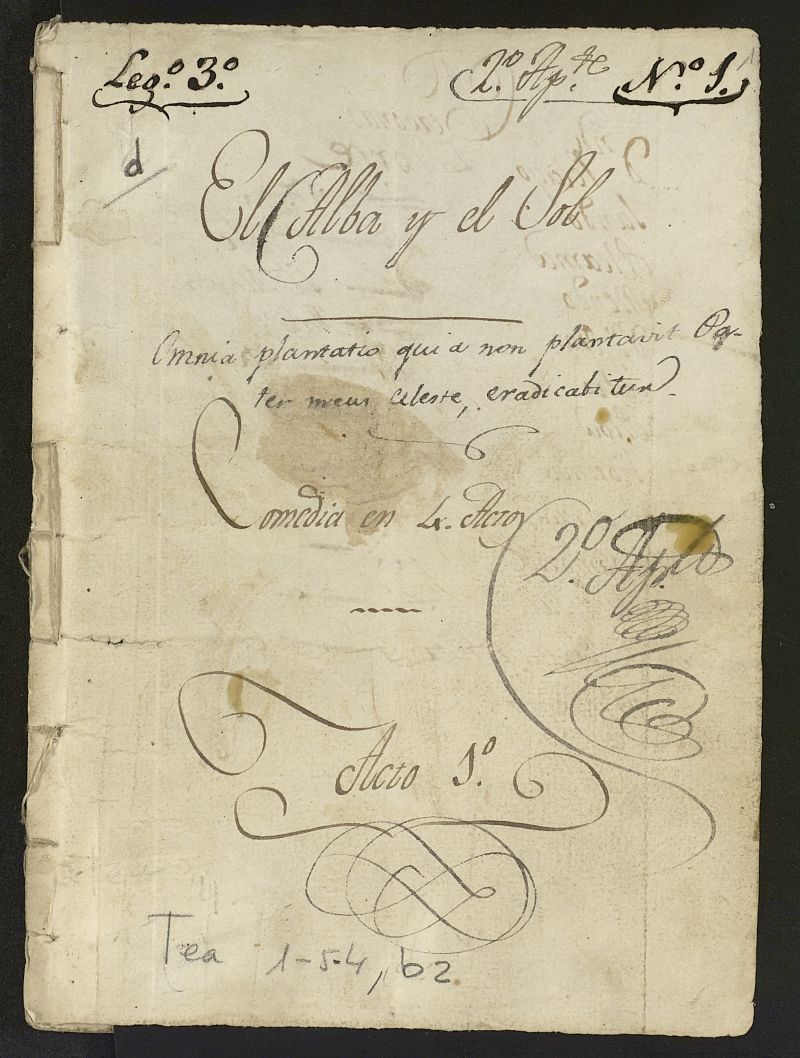 Leg.º 3.º 2.º Ap.te N.º 1. 1
d
El Alba y el Sol
Omnia plantatio quia non plantavit Pa-
ter meus celeste, eradicabitur.
Comedia en 4. Actos
2.º Ap.te
Acto 1.º
Tea 1-5-4, b2